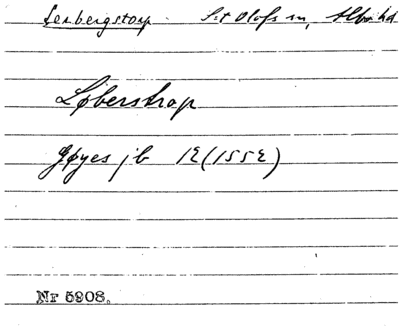 Lerbergstorp S:t Olofs sn, Albo hd
Løberstrop
Gøyes jb 12 (1552)
Nr 5908.